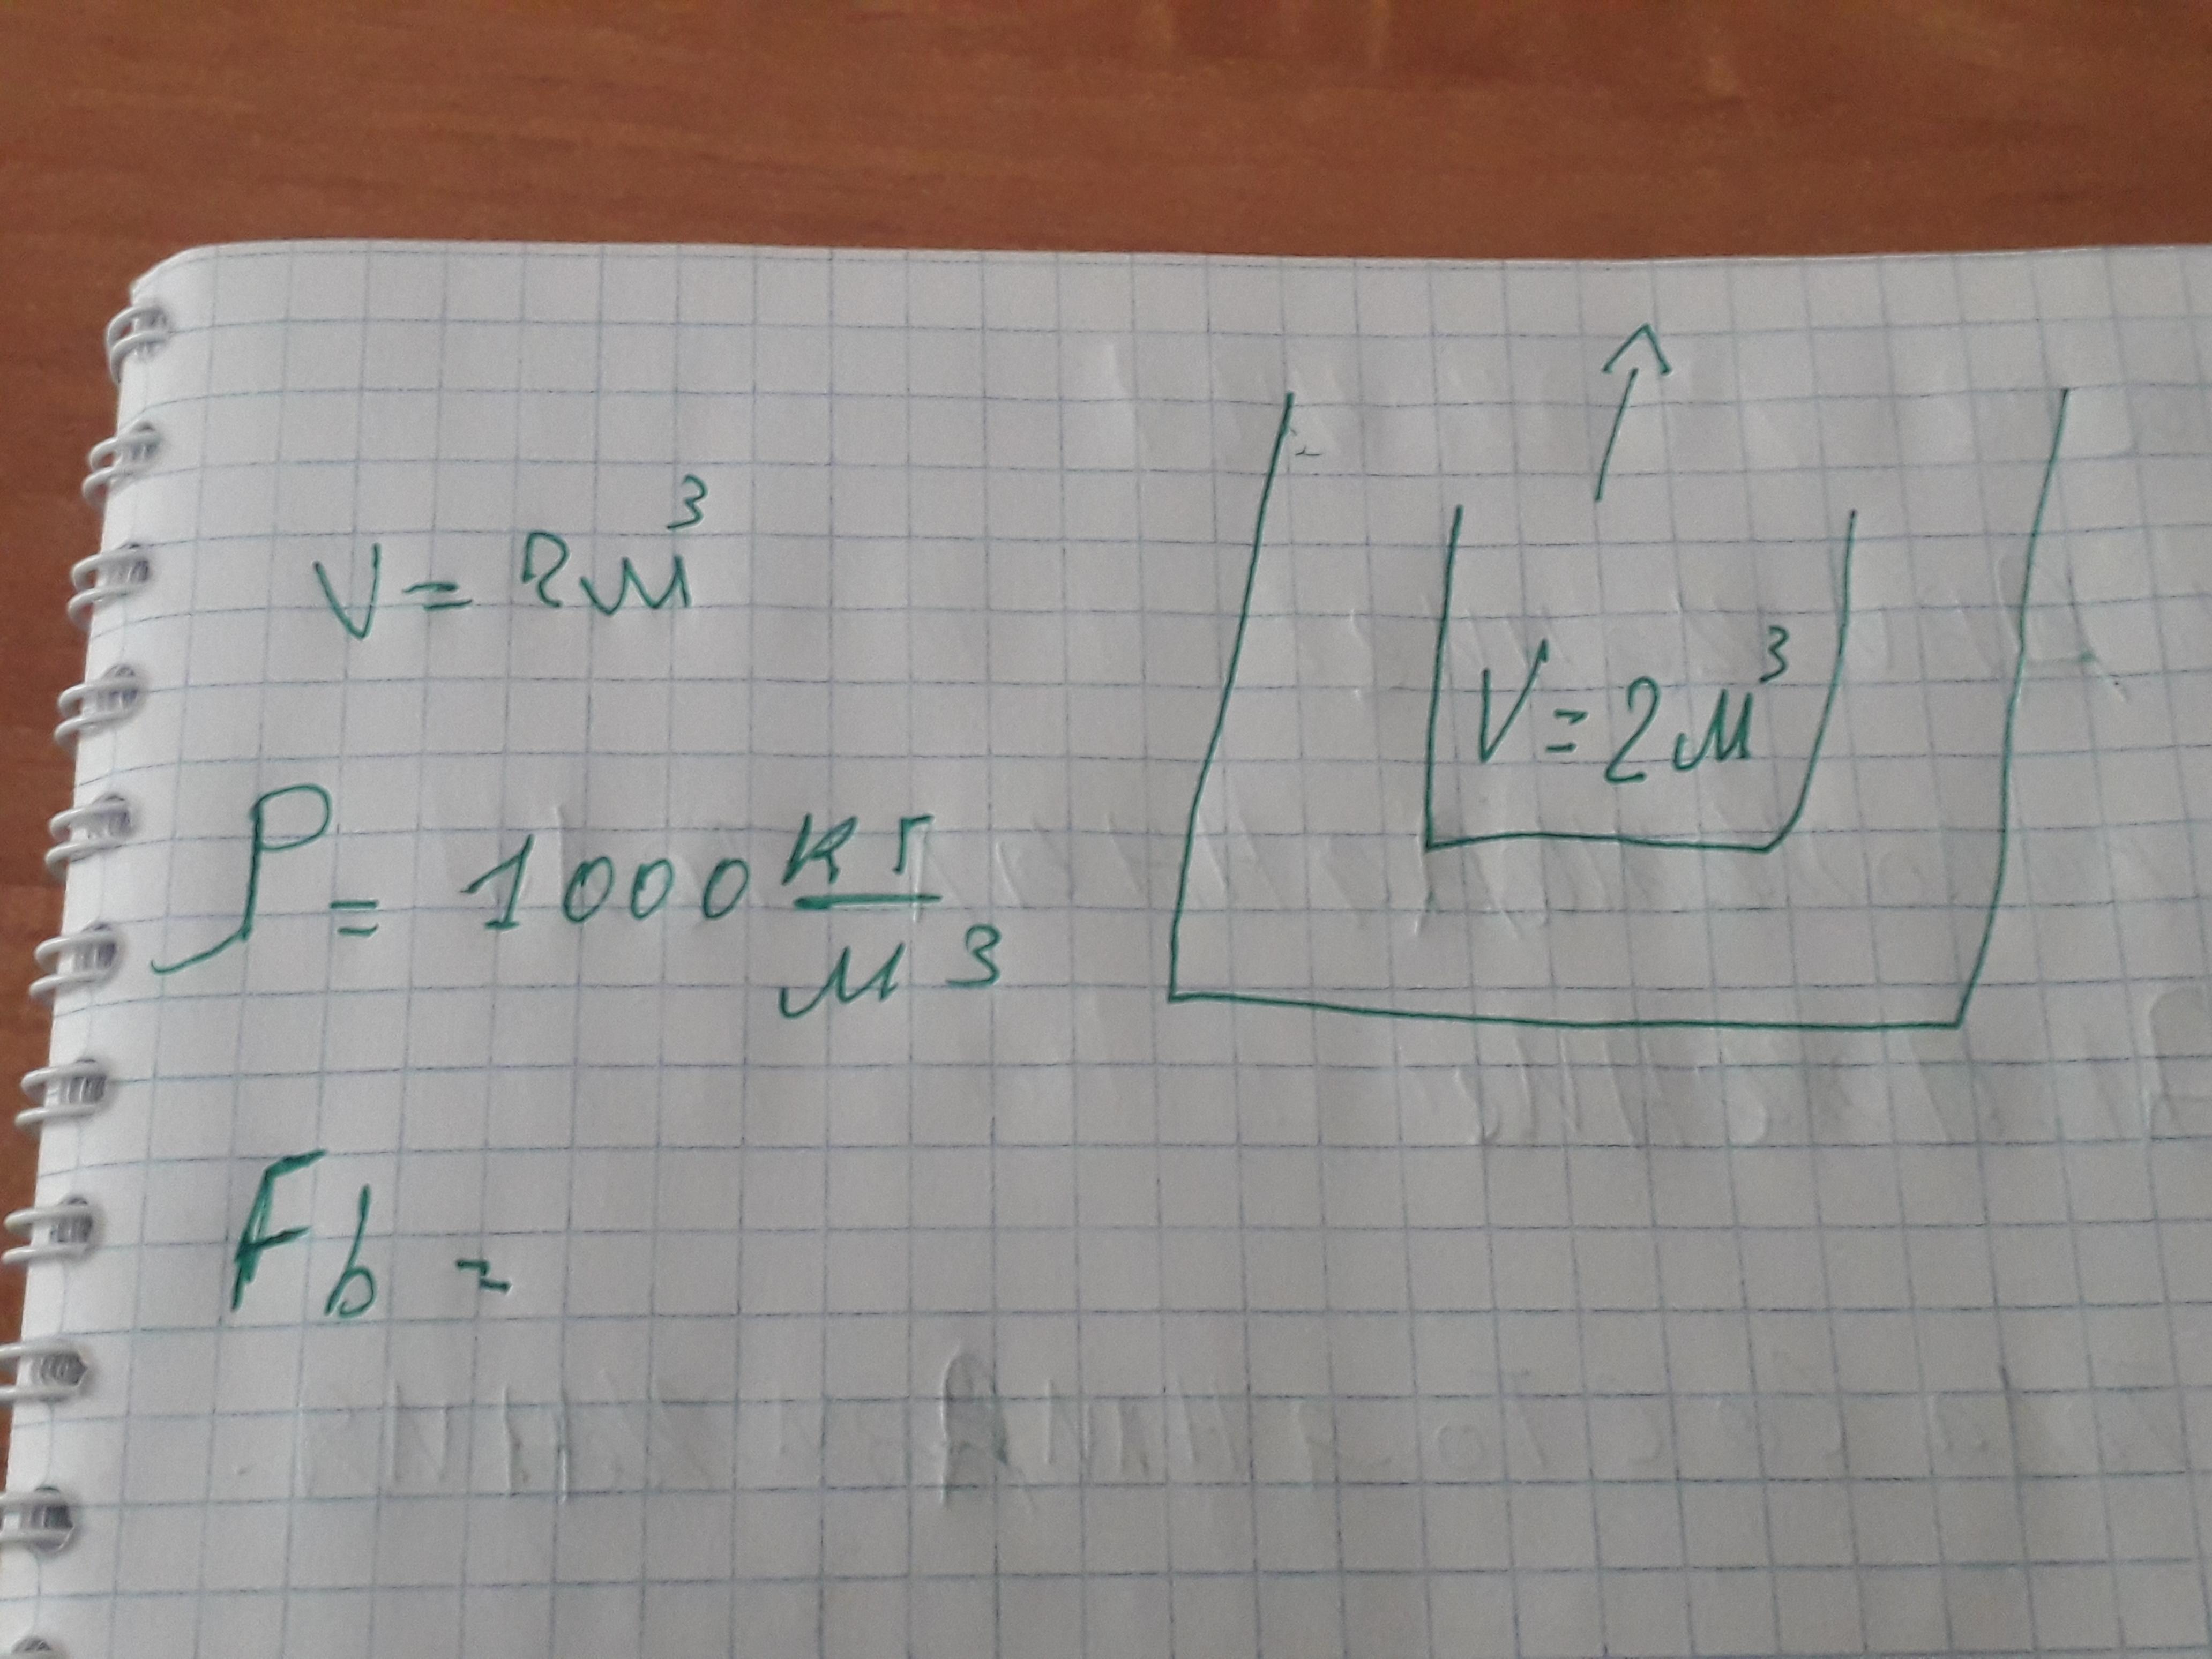 V = 2м³
ρ = 1000 кг/м³
F_b =
V = 2м³